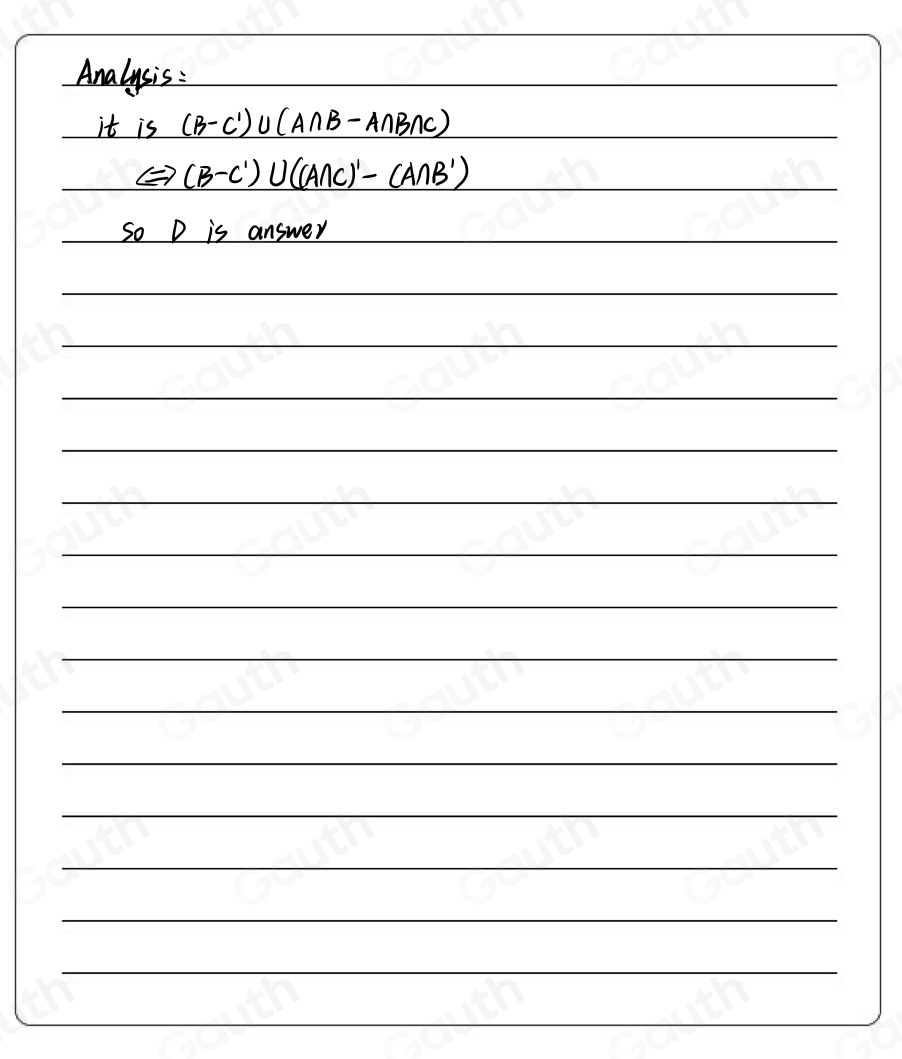 Analysis:
it is (B-C')∪(A∩B-A∩B∩C)
⇔(B-C')∪((A∩C)'-(A∩B')
so D is answer
Gauth